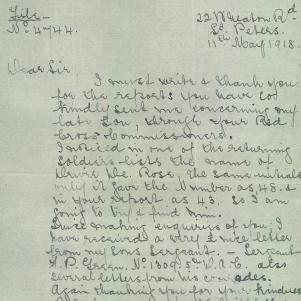 File 22 Wheaton Rd
No 4744. St. Peters.
11th May 1918.
Dear Sir
I must write & thank you
for the reports you have so
kindly sent me concerning my
late Son, through your Red
Cross Commissioners.
I noticed in one of the returning
Soldiers lists the name of
De. Rose, the same initials
only it gave the Number as 48. &
in your report as 43, so I am
going to try & find him.
Since making enquiries of you I
have received a very nice letter
from my Sons Sergeant. - Sergeant
No 1309. also
several letters from his comrades.
Again thanking you for your kindness